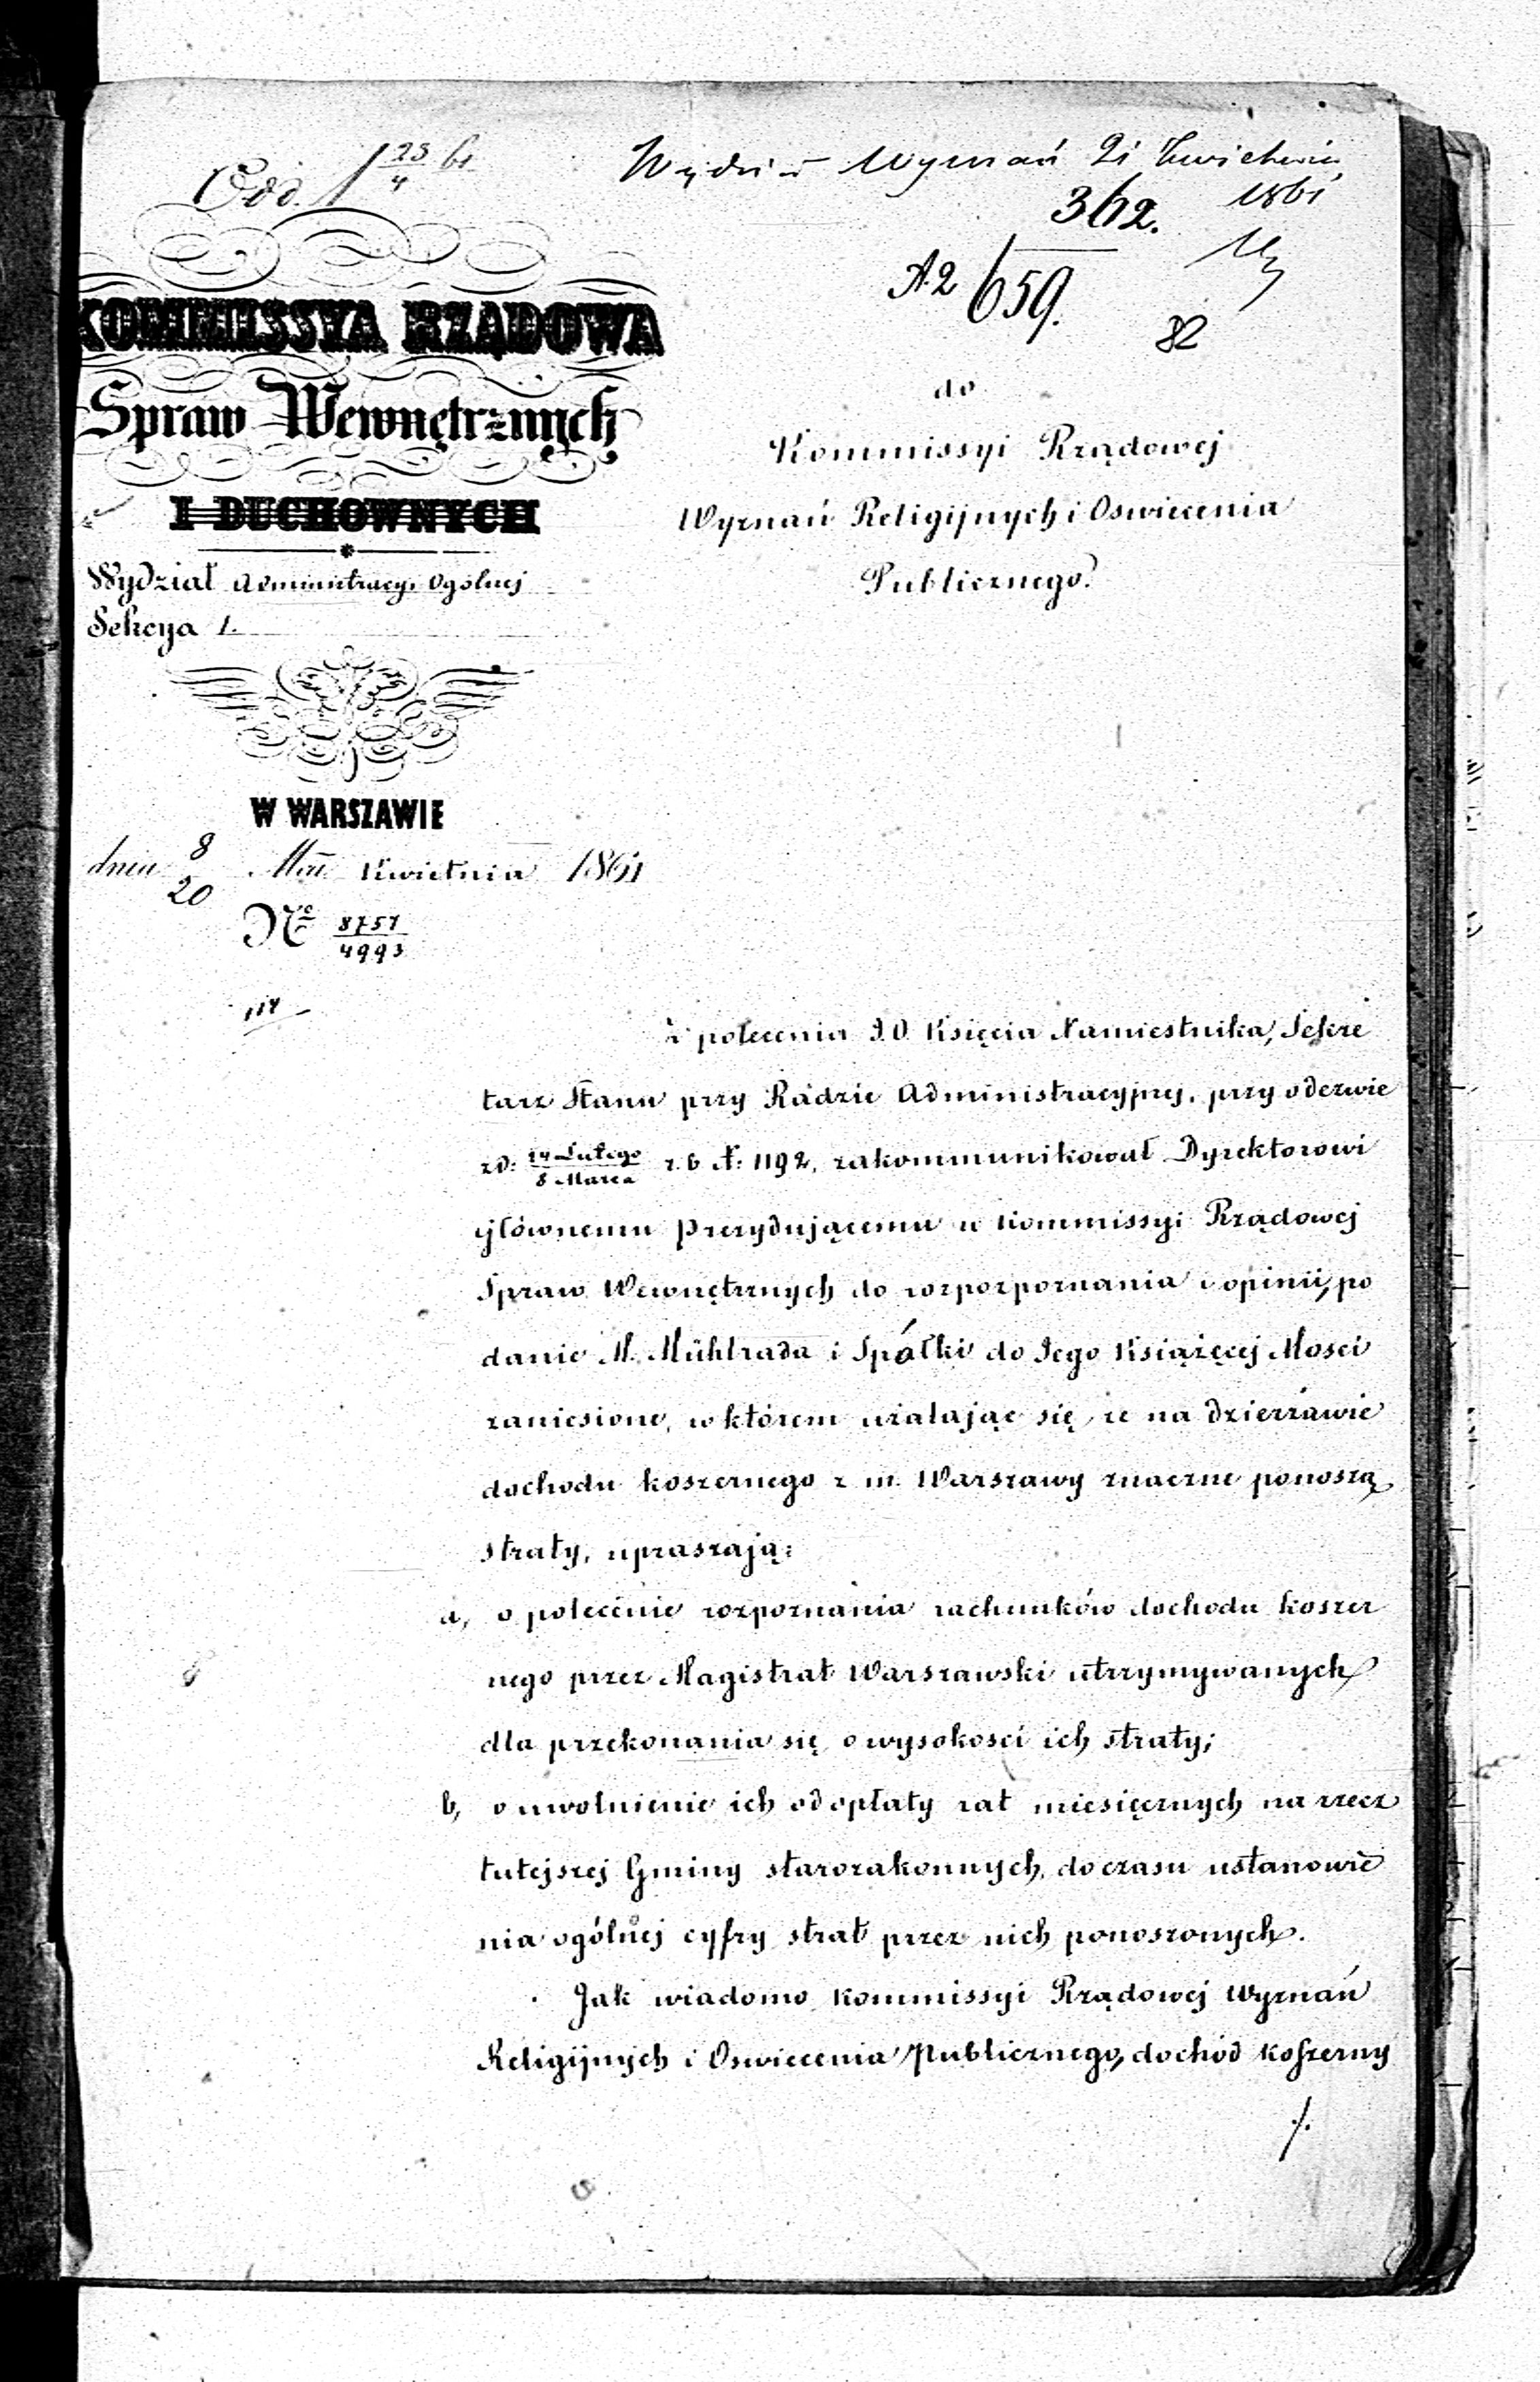 Odd. 1 23/4 61
Wydział Wyznań 21 Kwietnia
1861
362.
A2 659.
82
KOMMISSYA RZĄDOWA
Spraw Wewnętrznych
I DUCHOWNYCH
Wydział Administracyi Ogólnej
Sekcya 1.
W WARSZAWIE
dnia 8/20 Kwietnia 1861
No 8757/4993
do
Kommissyi Rządowej
Wyznań Religijnych i Oswiecenia
Publicznego.
Z polecenia J.O. Księcia Namiestnika, Sekre
tarz Stanu przy Radzie Administracyjnej, przy odezwie
zd: 24 Lutego/8 Marca r.b. N: 1192, zakommunikował Dyrektorowi
głównemu prezydującemu w Kommissyi Rządowej
Spraw Wewnętrznych do rozporpoznania i opinii, po
danie M. Mühlrada i Spółki do Jego Książęcej Mosci
zaniesione, w którem użalając się, że na dzierżawie
dochodu koszernego z m. Warszawy znaczne ponoszą
straty, upraszają:
a, o polecenie rozpoznania rachunków dochodu koszer
nego przez Magistrat Warszawski utrzymywanych
dla przekonania się o wysokosci ich straty;
b, o uwolnienie ich od opłaty rat miesięcznych na rzecz
tutejszej Gminy starozakonnych, do czasu ustanowie
nia ogólnej cyfry strat przez nich ponoszonych.
Jak wiadomo Kommissyi Rządowej Wyznań
Religijnych i Oswiecenia Publicznego, dochód koszerny
./.